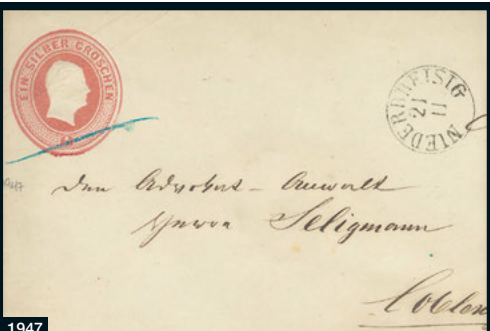 EIN SILBER GROSCHEN
NIEDERBREISIG
21
11
Den Advokat-Anwalt
Herrn Seligmann
Coblen
1947